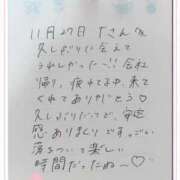 11月27日 Tさんへ
久しぶりに会えて
うれしかった〜!! 会社
帰り、疲れてる中、来て
くれてありがとう♡
久しぶりでって、安定
感ありまくりですっごい
落ちついて楽しい
時間だったね〜♡